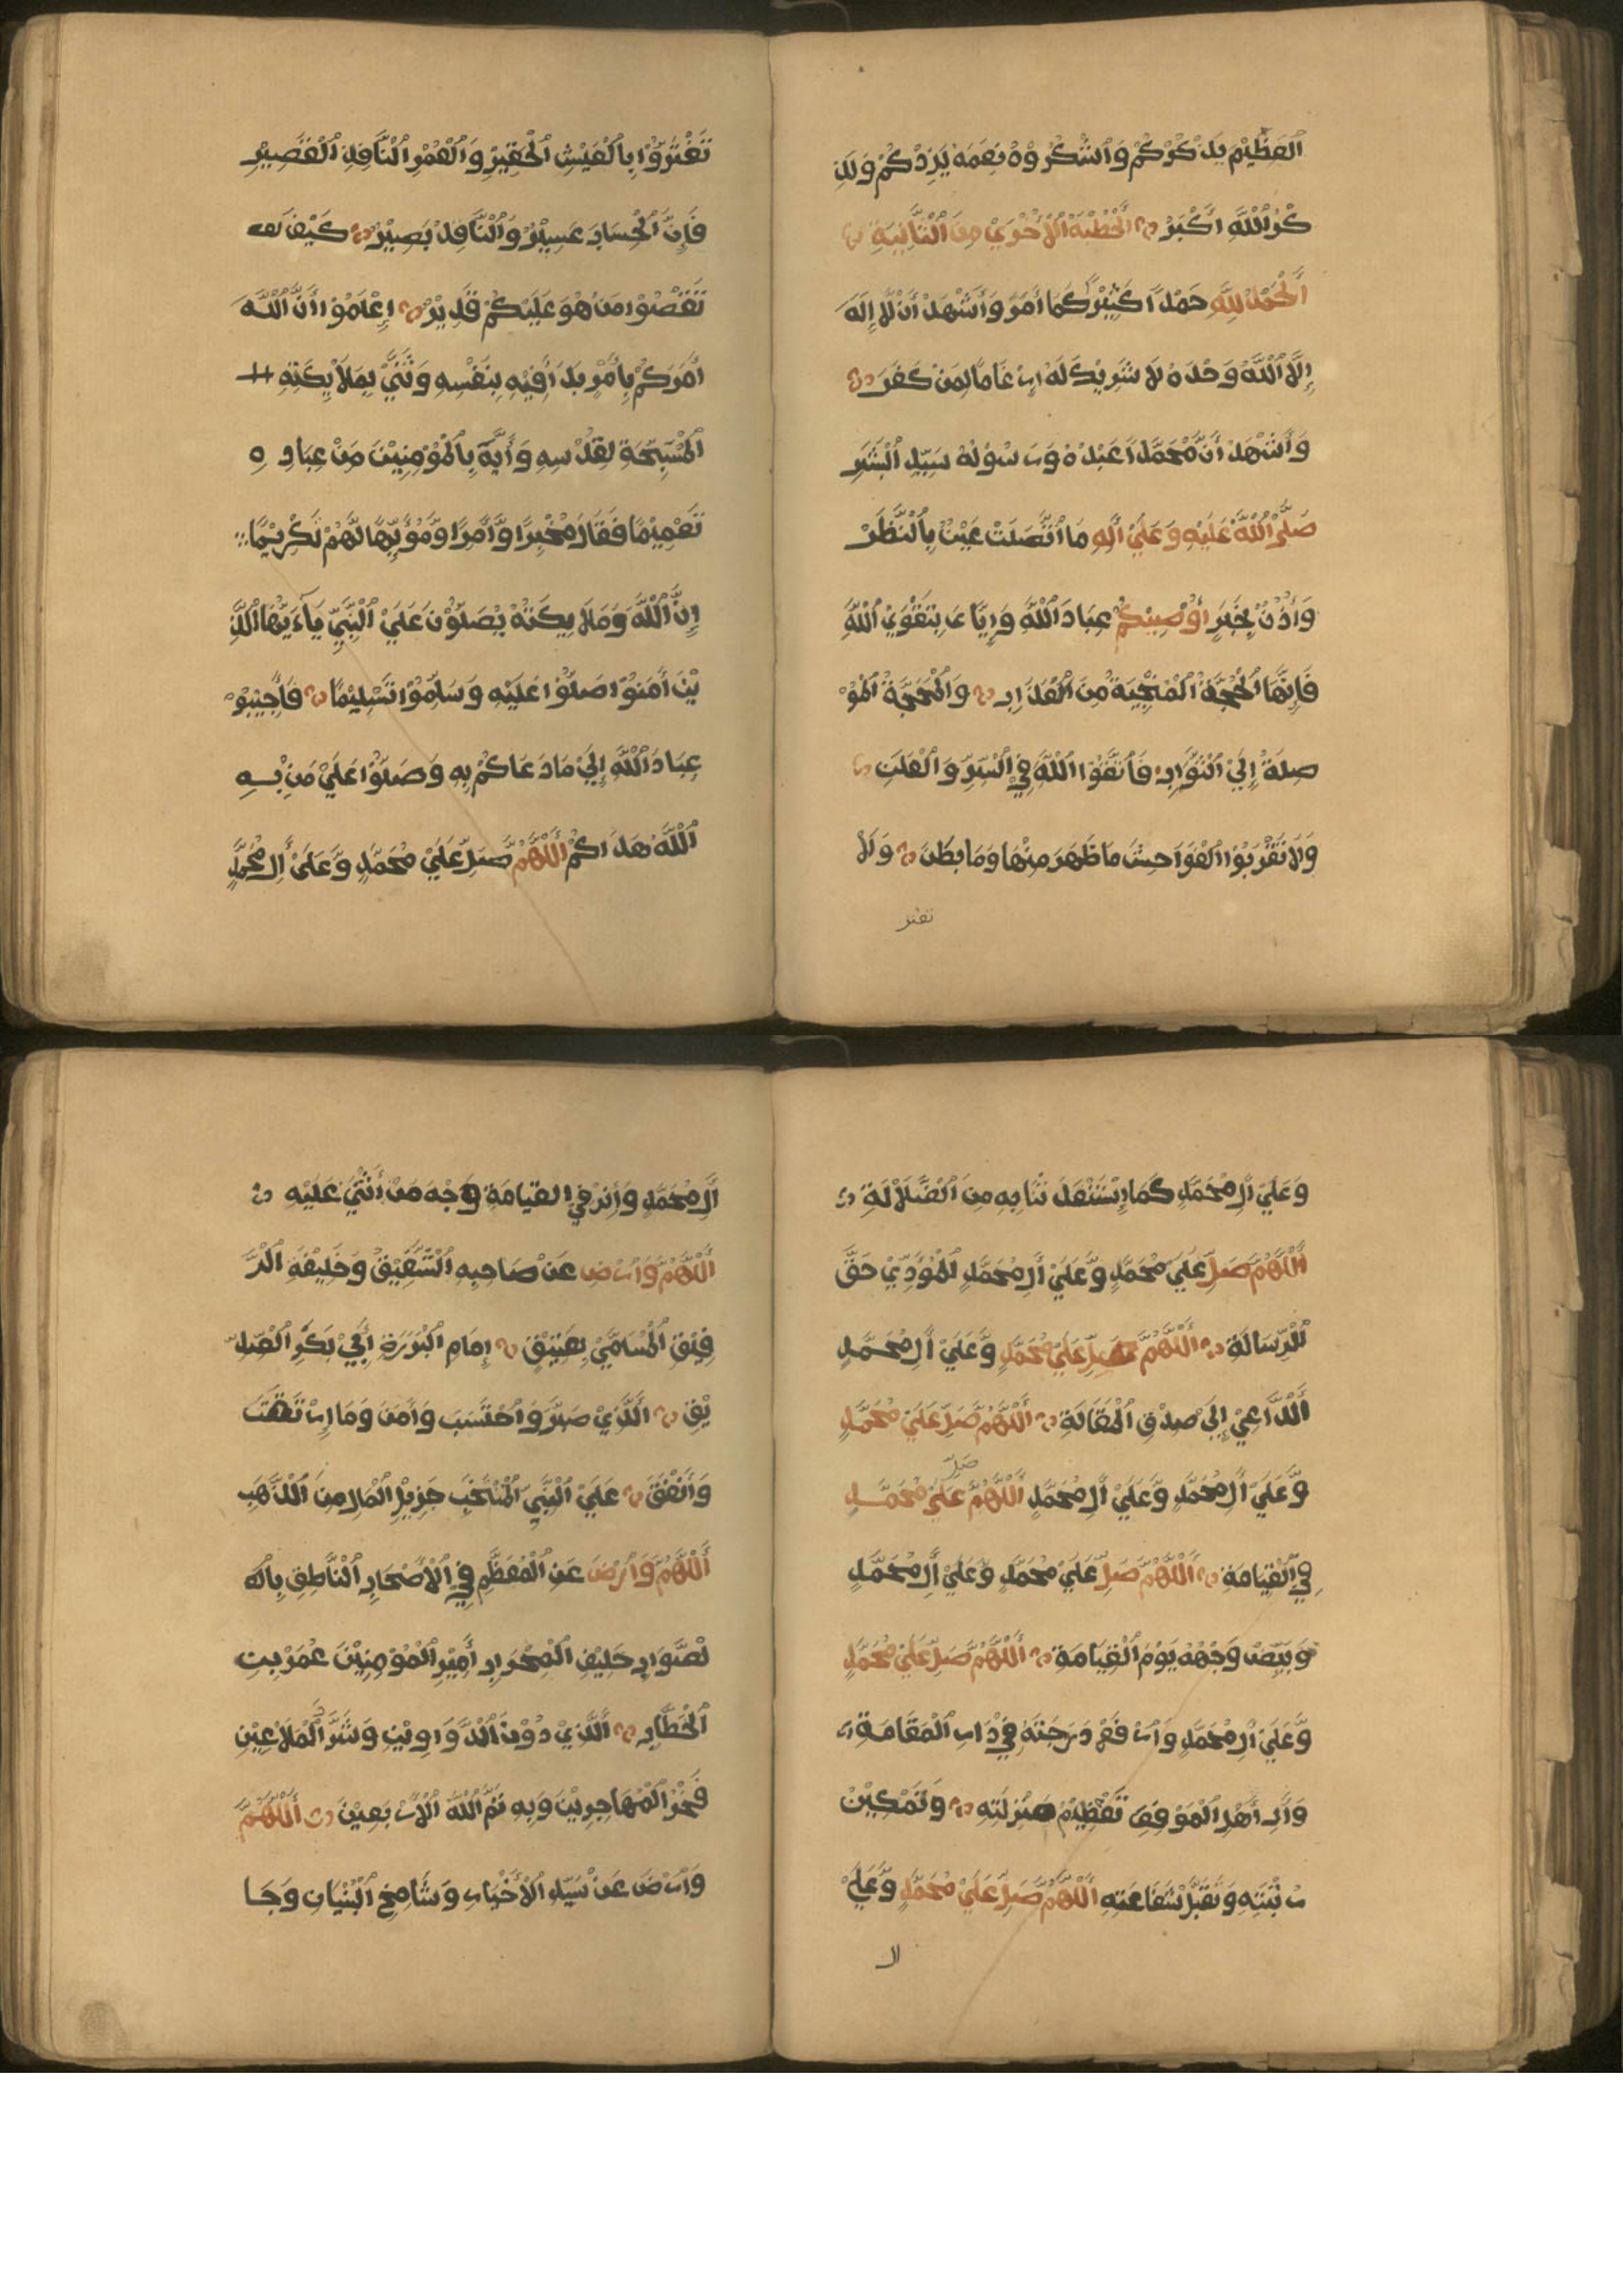 ٱلْعَظِيْمَ يَذْكُرْكُمْ وَٱشْكُرُوْهُ نِعَمَهُ يَزِدْكُمْ وَلَذِ
كْرُ ٱللَّهِ أَكْبَرُ ٱلْخُطْبَةُ ٱلْأُخْرَيٰ مِنَ ٱلثَّانِيَةِ
ٱلْحَمْدُ لِلَّهِ حَمْدًا كَثِيْرًا كَمَا أَمَرَ وَأَشْهَدُ أَنْ لَّا إِلَهَ
إِلَّا ٱللَّهُ وَحْدَهُ لَا شَرِيْكَ لَهُ إِرْغَامًا لِمَنْ كَفَرَ
وَأَشْهَدُ أَنَّ مُحَمَّدًا عَبْدُهُ وَرَسُوْلُهُ سَيِّدُ ٱلْبَشَرِ
صَلَّى ٱللَّهُ عَلَيْهِ وَعَلَيٰ أٰلِهِ مَا ٱتَّصَلَتْ عَيْنٌ بِٱلنَّظَرْ
وَأُذُنٌ بِخَبَرٍ أُوْصِيْكُمْ عِبَادَ ٱللَّهِ وَإِيَّايَ بِتَقْوَيٰ ٱللَّهِ
فَإِنَّهَا ٱلْحُجَّةُ ٱلْمُنْجِيَةُ مِنَ ٱلْعَذَابِ وَٱلْمَحَجَّةُ ٱلْمُوْ
صِلَةُ إِلَيٰ ٱلثَّوَابِ فَٱتَّقُوْا ٱللَّهَ فِي ٱلسِّرِّ وَٱلْعَلَنِ
وَلَا تَقْرَبُوْا ٱلْفَوَاحِشَ مَا ظَهَرَ مِنْهَا وَمَا بَطَنَ وَلَا
تغتر
تَغْتَرُّوْا بِٱلْعَيْشِ ٱلْحَقِيْرِ وَٱلْعُمْرِ ٱلنَّافِدِ ٱلْقَصِيْرِ
فَإِنَّ ٱلْحِسَابَ عَسِيْرٌ وَٱلنَّاقِدَ بَصِيْرٌ كَيْفَ
تَعْصُوْا مَنْ هُوَ عَلَيْكُمْ قَدِيْرٌ إِعْلَمُوْا أَنَّ ٱللَّهَ
أَمَرَكُمْ بِأَمْرٍ بَدَأَ فِيْهِ بِنَفْسِهِ وَثَنَّيٰ بِمَلَائِكَتِهِ
ٱلْمُسَبِّحَةِ لِقُدْسِهِ وَأَيَّهَ بِٱلْمُؤْمِنِيْنَ مِنْ عِبَادِهِ
تَعْمِيْمًا فَقَالَ مُخْبِرًا وَّأٰمِرًا وَّمُؤَيِّهًا لَّهُمْ تَكْرِيْمًا
إِنَّ ٱللَّهَ وَمَلَائِكَتَهُ يُصَلُّوْنَ عَلَيٰ ٱلنَّبِيِّ يَآءَيُّهَا ٱلَّذِ
يْنَ أٰمَنُوْا صَلُّوْا عَلَيْهِ وَسَلِّمُوْا تَسْلِيْمًا فَأَجِيْبُوْ
عِبَادَ ٱللَّهِ إِلَيٰ مَا دَعَاكُمْ بِهِ وَصَلُّوْا عَلَيٰ مَنْ بِهِ
ٱللَّهُ هَدَاكُمْ ٱللَّهُمَّ صَلِّ عَلَيٰ مُحَمَّدٍ وَّعَلَيٰ أٰلِ مُحَمَّدٍ
وَعَلَيٰ أٰلِ مُحَمَّدٍ كَمَا إِسْتَنْقَذَتْنَا بِهِ مِنَ ٱلضَّلَالَةِ
ٱللَّهُمَّ صَلِّ عَلَيٰ مُحَمَّدٍ وَّعَلَيٰ أٰلِ مُحَمَّدٍ ٱلْمُؤَدِّيْ حَقَّ
ٱلرِّسَالَةِ ٱللَّهُمَّ صَلِّ عَلَيٰ مُحَمَّدٍ وَّعَلَيٰ أٰلِ مُحَمَّدٍ
ٱلدَّاعِيْ إِلَيٰ صِدْقِ ٱلْمَقَالَةِ ٱللَّهُمَّ صَلِّ عَلَيٰ مُحَمَّدٍ
وَّعَلَيٰ أٰلِ مُحَمَّدٍ وَّعَلَيٰ أٰلِ مُحَمَّدٍ ٱللَّهُمَّ صَلِّ عَلَيٰ مُحَمَّدٍ
فِي ٱلْقِيَامَةِ ٱللَّهُمَّ صَلِّ عَلَيٰ مُحَمَّدٍ وَّعَلَيٰ أٰلِ مُحَمَّدٍ
وَبَيِّضْ وَجْهَهُ يَوْمَ ٱلْقِيَامَةِ ٱللَّهُمَّ صَلِّ عَلَيٰ مُحَمَّدٍ
وَّعَلَيٰ أٰلِ مُحَمَّدٍ وَٱرْفَعْ دَرَجَتَهُ فِيْ دَارِ ٱلْمَقَامَةِ
وَأَرِ أَهْلَ ٱلْمَوْقِفِ تَعْظِيْمَ مَنْزِلَتِهِ وَتَمْكِيْنَ
رُتْبَتِهِ وَتَقَبَّلْ شَفَاعَتِهِ ٱللَّهُمَّ صَلِّ عَلَيٰ مُحَمَّدٍ وَّعَلَيٰ
ال
أٰلِ مُحَمَّدٍ وَأَنِرْ فِي ٱلْقِيَامَةِ وَجْهَ مَنْ أَثْنَيٰ عَلَيْهِ
ٱللَّهُمَّ وَٱرْضَ عَنْ صَاحِبِهِ ٱلشَّفِيْقِ وَخَلِيْفَةِ ٱلرَّ
فِيْقِ ٱلْمُسَمَّيٰ بِعَتِيْقٍ إِمَامِ ٱلْبَرَرَةِ أَبِيْ بَكْرِ ٱلصِّدِّ
يْقِ ٱلَّذِيْ صَبَرَ وَٱحْتَسَبَ وَأٰمَنَ وَمَا إِرْتَقَبَ
وَأَنْفَقَ عَلَيٰ ٱلنَّبِيِّ ٱلْمُنْتَخَبِ جَزِيْلَ ٱلْمَالِ مِنَ ٱلذَّهَبِ
ٱللَّهُمَّ وَٱرْضَ عَنِ ٱلْمُعَظَّمِ فِي ٱلْأَصْحَابِ ٱلنَّاطِقِ بِٱلْ
لصَّوَابِ حَلِيْفِ ٱلْمِحْرَابِ أَمِيْرِ ٱلْمُؤْمِنِيْنَ عُمَرَ بْنِ
ٱلْخَطَّابِ ٱلَّذِيْ دَوَّنَ ٱلدَّوَاوِيْنَ وَشَرَّدَ ٱلْمَلَاعِيْنِ
فَخْرُ ٱلْمُهَاجِرِيْنَ وَبِهِ تَمَّ ٱللَّهُ ٱلْأَرْبَعِيْنَ ٱللَّهُمَّ
وَٱرْضَ عَنْ سَيِّدِ ٱلْأَخْيَارِ وَشَامِخِ ٱلْبُنْيَانِ وَجَا